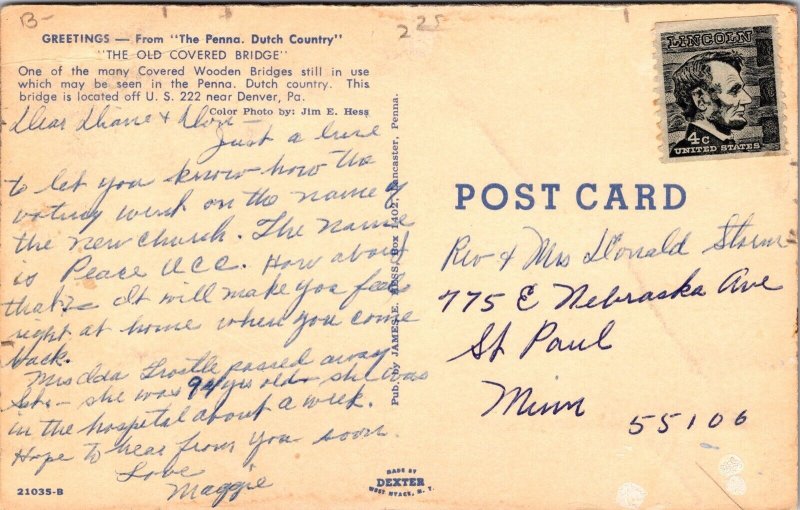 B-
225
GREETINGS — From "The Penna. Dutch Country"
"THE OLD COVERED BRIDGE"
One of the many Covered Wooden Bridges still in use
which may be seen in the Penna. Dutch country. This
bridge is located off U. S. 222 near Denver, Pa.
Color Photo by: Jim E. Hess
Dear Diane & Don,
Just a line
to let you know how the
voting went on the name of
the new church. The name
is Peace UCC. How about
that? It will make you feel
right at home when you come
back.
Mrs Ida Trostle passed away
Sat. - she was 94 yrs old - she was
in the hospital about a week.
Hope to hear from you soon.
Love
Maggie
21035-B
Pub. by JAMES E. HESS, Box 1402, Lancaster, Penna.
MADE BY
DEXTER
WEST NYACK, N. Y.
LINCOLN
4c
UNITED STATES
POST CARD
Rev & Mrs Donald Storm
775 E Nebraska Ave
St Paul
Minn
55106